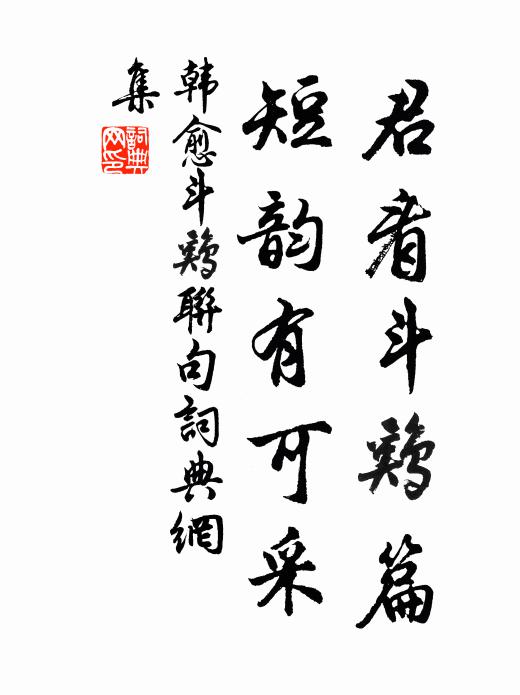 君看斗鷄篇
短韵有可采
韩愈斗鷄聯句詞典網
集
詞典网印